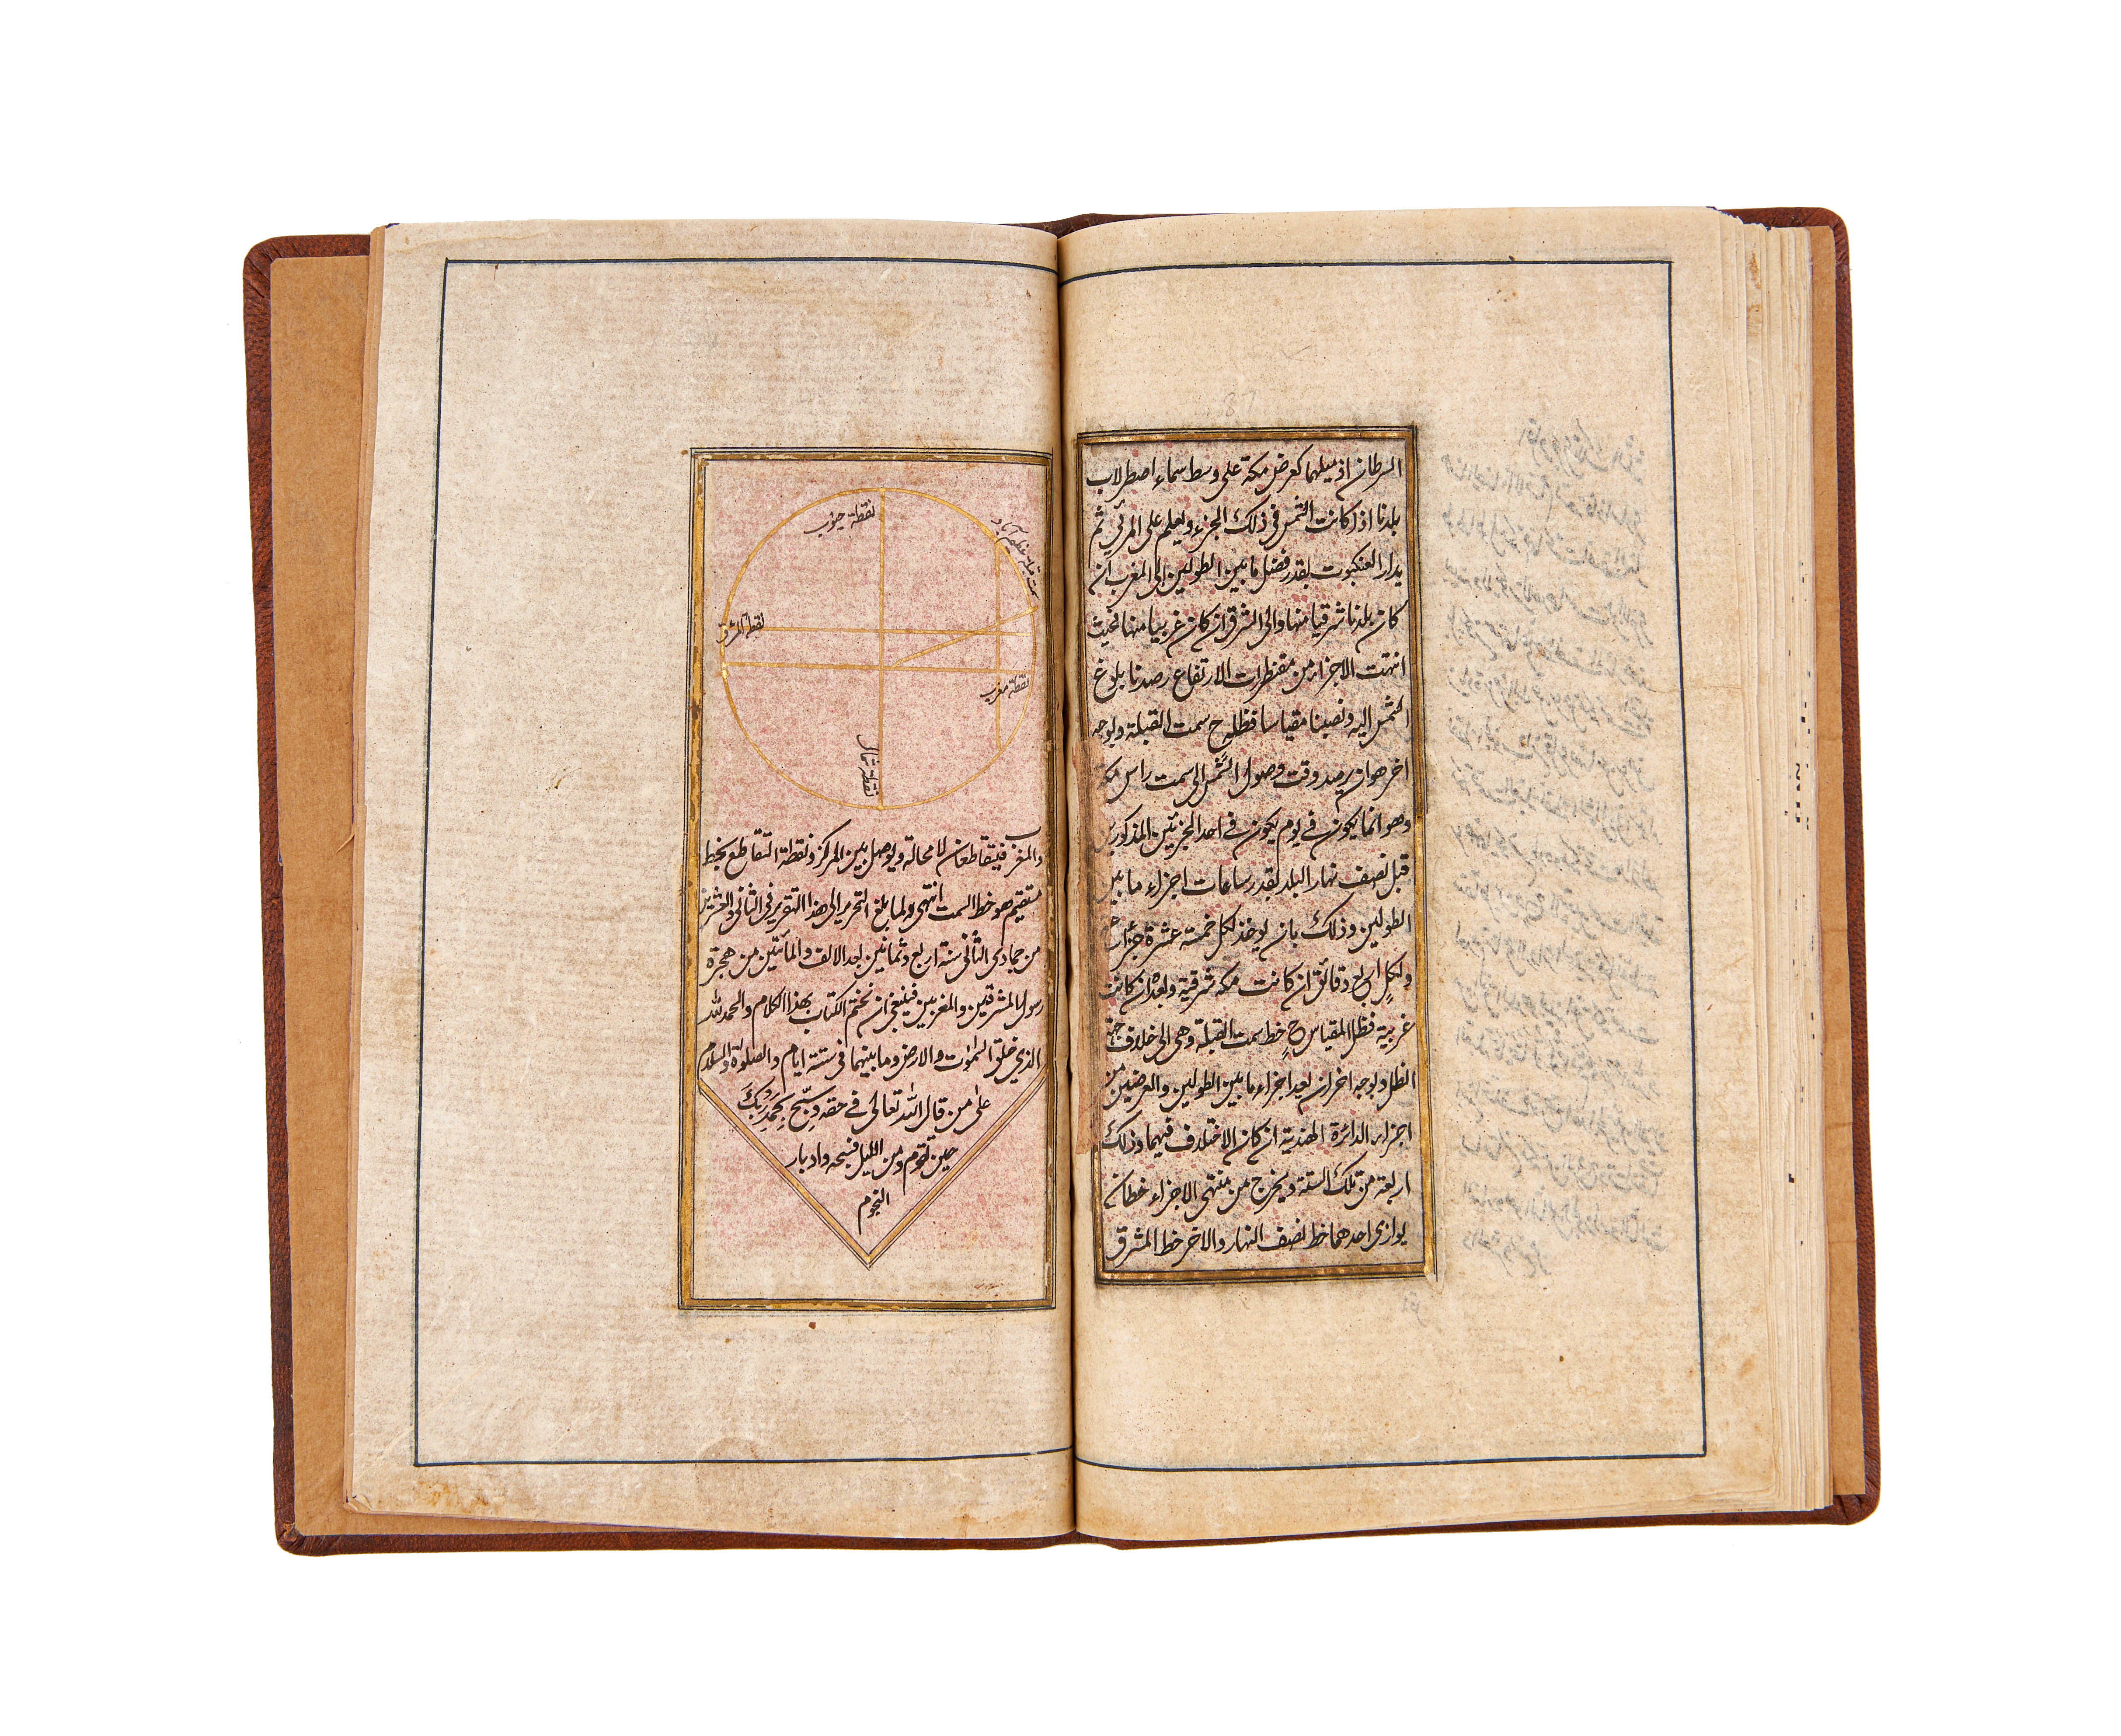 السرطان اذ ميلهما كعرض مكة على وسط سماء اصطرلاب
بلدنا اذا كانت الشمس فى ذلك الجزء ويعلم على المرئي ثم
يدار العنكبوت بقدر فضل ما بين الطولين الى المغرب ان
كان بلدنا شرقيا منها والى المشرق ان كان غربيا منها فحيث
انتهت الاجزاء من مقنطرات الارتفاع رصدنا بلوغ
الشمس اليه ونصبنا مقياسا فظله ح سمت القبلة وبوجه
اخر هو ان يرصد وقت وصول الشمس الى سمت راس مكة
وهو انما يكون فى يوم يكون فى احد الجزئين المذكورين
قبل نصف نهار البلد بقدر ساعات اجزاء ما بين
الطولين وذلك بان يوخذ لكل خمسة عشرة جزأ
ولكل اربع دقائق ان كانت مكه شرقية وبعده ان كانت
غربية فظل المقياس ح خط سمت القبلة وهى الى خلاف جهة
الظل وبوجه اخر ان يعد اجزاء ما بين الطولين والعرضين من
اجزاء الدائرة الهندية ان كان الاختلاف فيهما وذلك
اربعة من تلك الستة ويخرج من منتهى الاجزاء خطان
يوازى احدهما خط نصف النهار والاخر خط المشرق
نقطة جنوب
سمت قبله عظيم آباد
نقطة المشرق
نقطة مغرب
نقطة شمال
والمغرب فيتقاطعان لا محالة ويوصل بين المركز ونقطة التقاطع بخط
مستقيم هو خط السمت انتهى ولما بلغ التحرير الى هذا التقرير فى الثانى والعشرين
من جمادى الثانى سنة اربع وثمانين بعد الالف والمأتين من هجرة
رسول المشرقين والمغربين فينبغى ان نختم الكتاب بهذا الكلام والحمد لله
الذي خلق السموت والارض وما بينهما فى ستة ايام والصلوة والسلام
على من قال الله تعالى فى حقه وسبح بحمد ربك
حين تقوم ومن الليل فسبحه وادبار
النجوم